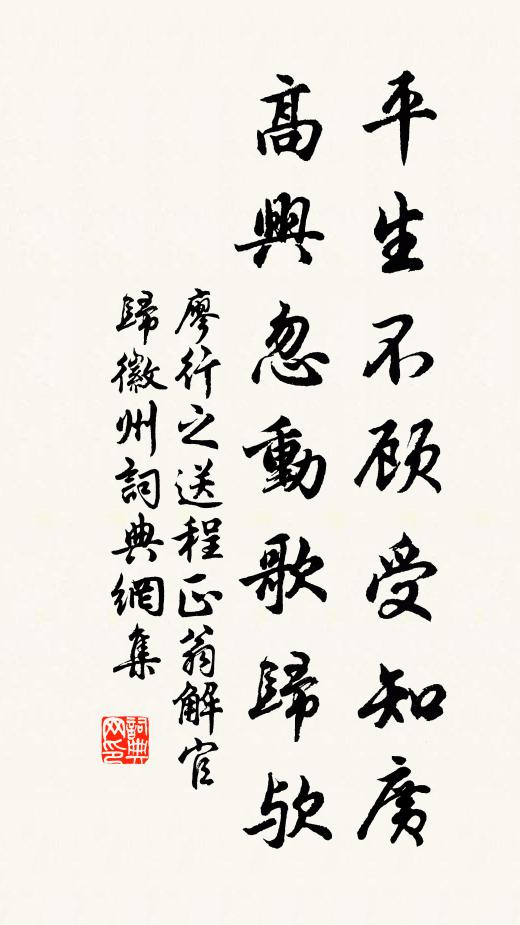 平生不顾受知廣
高興忽動歌歸欤
廖行之送程正翁解官
歸徽州詞典網集
詞典網印